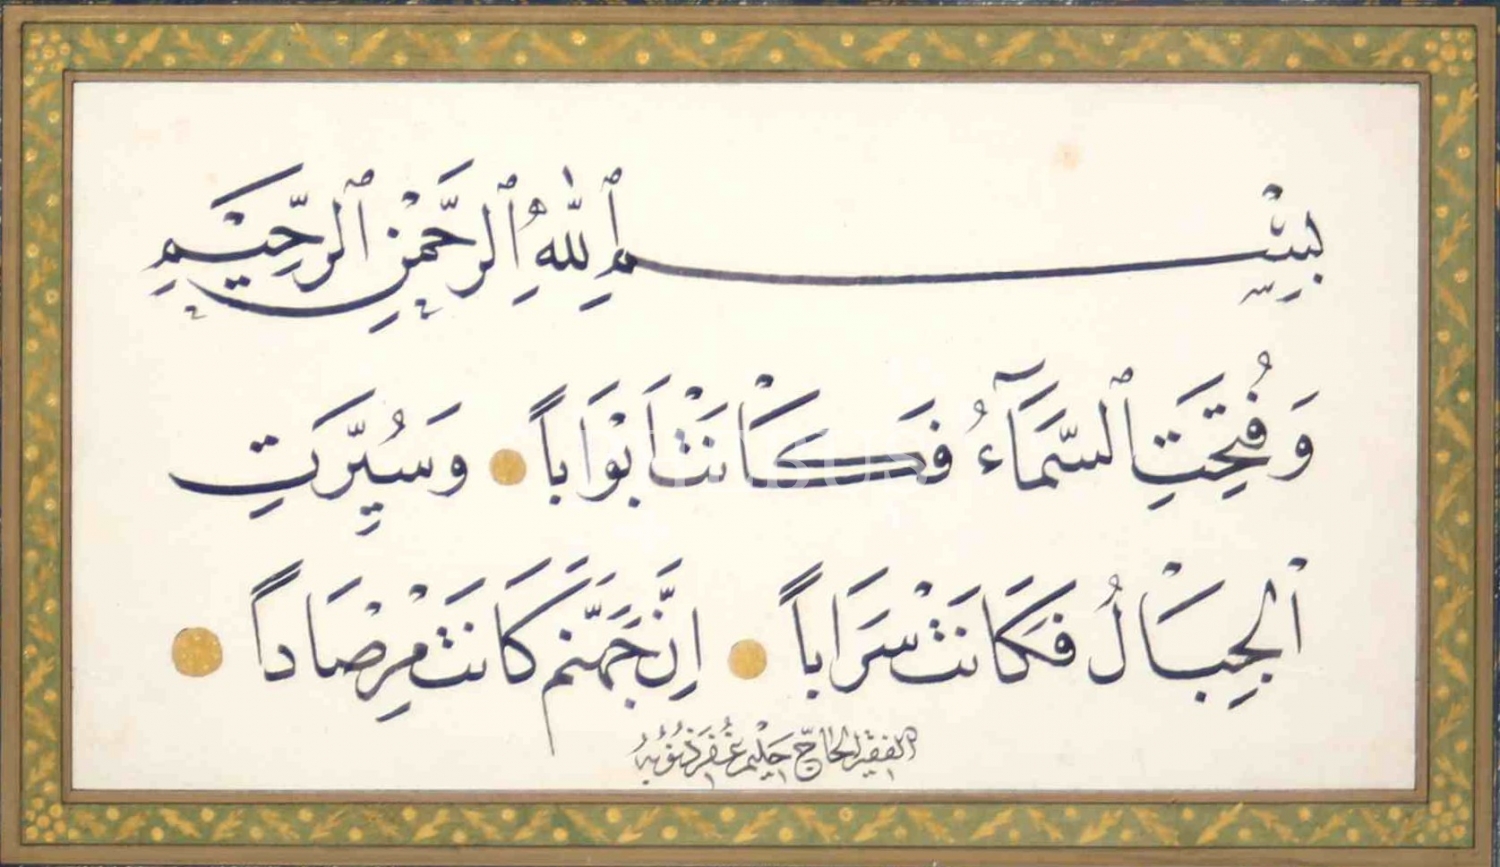 بِسْمِ ٱللهِ ٱلرَّحْمٰنِ ٱلرَّحِيْمِ
وَفُتِحَتِ ٱلسَّمَآءُ فَكَانَتْ اَبْوَاباً وَسُيِّرَتِ
الْجِبَالُ فَكَانَتْ سَرَاباً اِنَّ جَهَنَّمَ كَانَتْ مِرْصَاداً
الفقير الحاج حليم غُفِرَ ذُنُوبُهُ